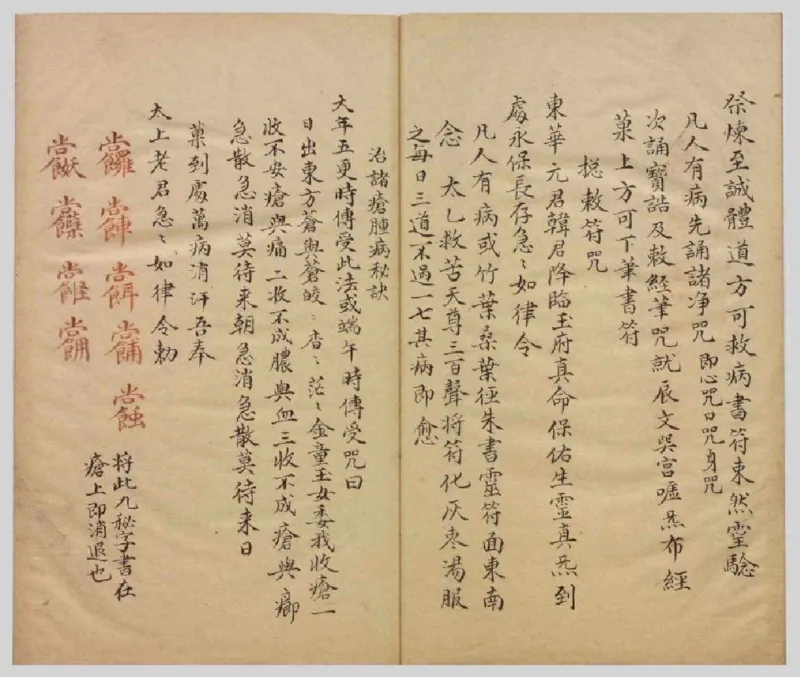 祭煉至誠體道方可救病書符東然靈驗
凡人有病先誦諸净咒即心咒口咒身咒
次誦寶誥及敕經筆咒就辰文哭宫噓炁布經
菓上方可下筆書符
捴敕符咒
東華元君韓君降臨玉府真命保佑生靈真炁到
處永保長存急〻如律令
凡人有病或竹葉桑葉徑朱書靈符面東南
念太乚救苦天尊三百聲将符化灰枣湯服
之每日三道不過一七其病即愈
治諸瘡腫病秘訣
大年五更時傳受此法或端午時傳受咒曰
日出東方蒼與蒼皎〻杳〻茫〻金童玉女委我收瘡一
收不安瘡與痛二收不成膿與血三收不成瘡與癤
急散急消莫待来朝急消急散莫待来日
菓到處萬病消汗吾奉
太上老君急〻如律令勅
将此九秘字書在
瘡上即消退也